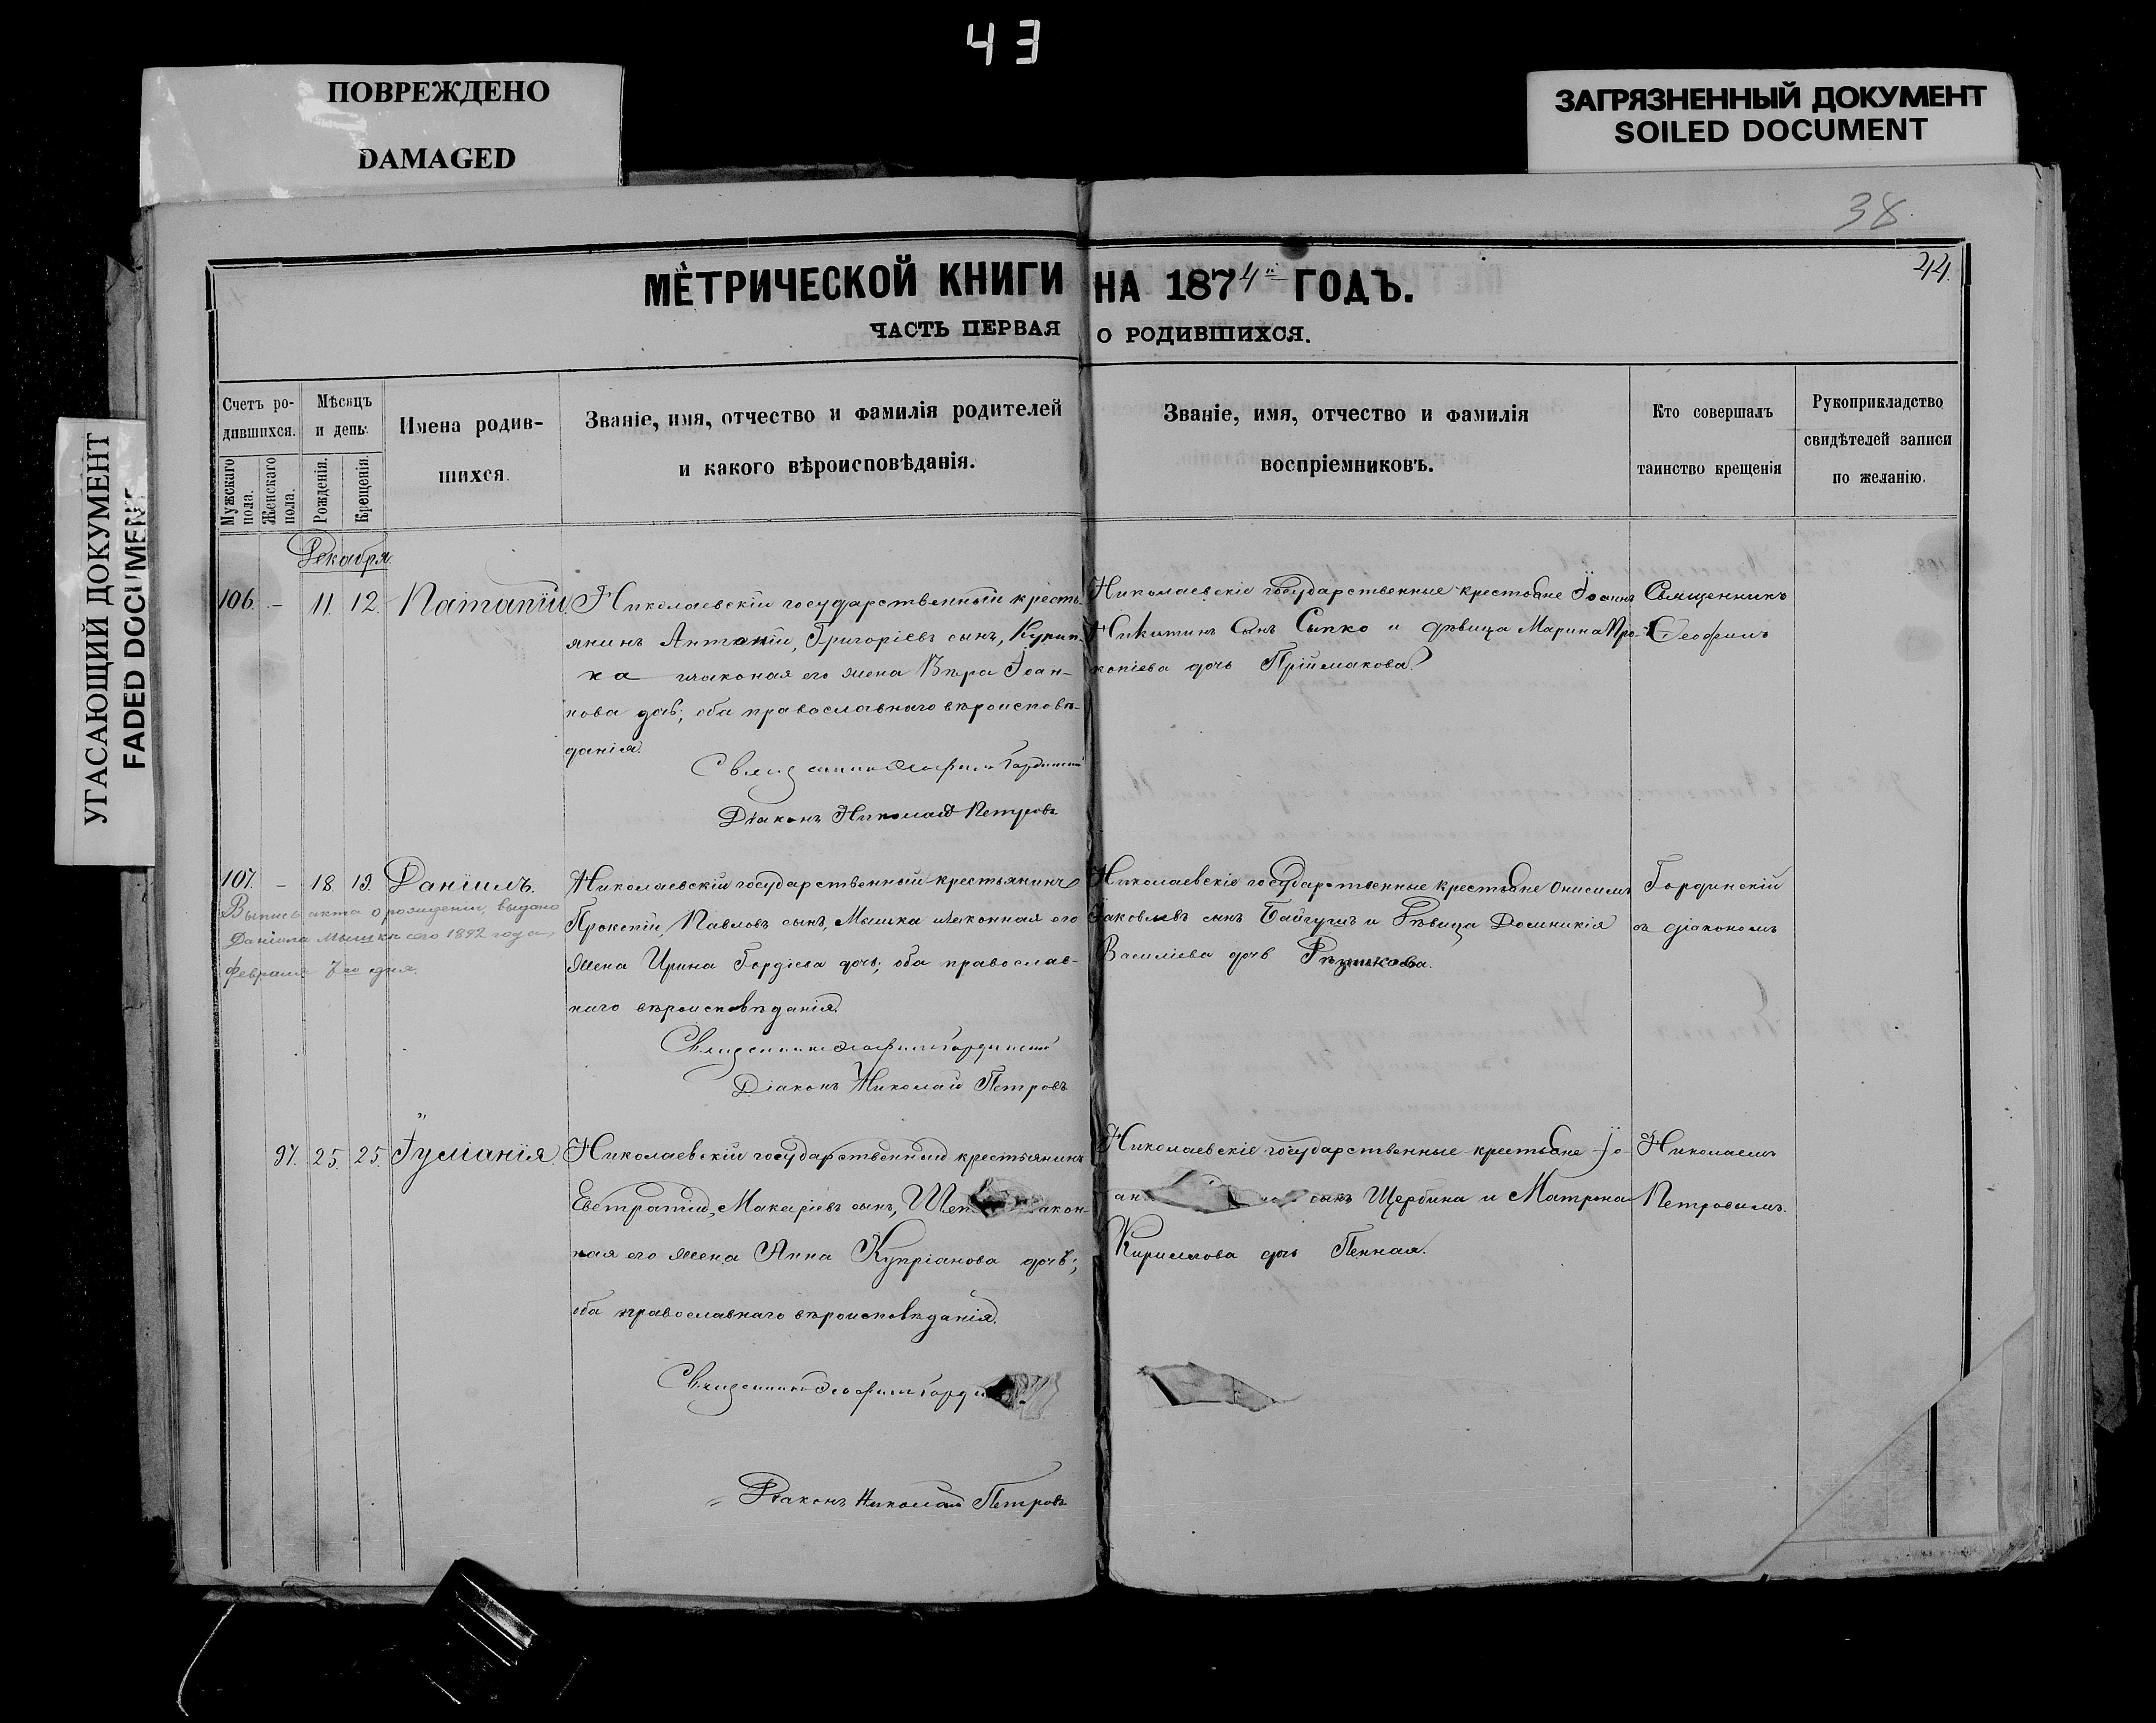 43
ПОВРЕЖДЕНО
DAMAGED
ЗАГРЯЗНЕННЫЙ ДОКУМЕНТ
SOILED DOCUMENT
УГАСАЮЩИЙ ДОКУМЕНТ
FADED DOCUMENT
38.
44.
МЕТРИЧЕСКОЙ КНИГИ НА 1874й ГОДЪ.
ЧАСТЬ ПЕРВАЯ О РОДИВШИХСЯ.
Счетъ ро-
дившихся.
Мужскаго пола.
Женскаго пола.
Мѣсяцъ
и день.
Рожденія.
Крещенія.
Имена родив-
шихся.
Званіе, имя, отчество и фамилія родителей
и какого вѣроисповѣданія.
Званіе, имя, отчество и фамилія
воспріемниковъ.
Кто совершалъ
таинство крещенія
Рукоприкладство
свидѣтелей записи
по желанію.
Декабря.
106. – 11. 12.
Николаевскій государственный кресть-
янинъ Антоній, Григоріевъ сынъ,
законая его жена Вѣра Іоан-
нова дочь; оба православнаго вѣроисповѣ-
данія.
Священникъ Ѳеофилъ Гординскій
Діаконъ Николай Петровъ
Николаевскіе государственные крестьяне Іоаннъ
Никитинъ Сынъ Сыпко и дѣвица Марина Про-
копіева дочь Пріймакова.
Священникъ
Ѳеофилъ
107. – 18. 19. Даніилъ.
Выпись акта о рожденіи, выдано
Даніила Мышки сего 1892 года,
февраля 7го дня.
Николаевскій государственный крестьянинъ
Прокопій, Павловъ сынъ, Мышка и законная его
жена Ирина Гордіева дочь; оба православ-
наго вѣроисповѣданія.
Священникъ Ѳеофилъ Гординскій
Діаконъ Николай Петровъ
Николаевскіе государственные крестьяне Онисимъ
Іаковлевъ сынъ Байгушъ и Дѣвица Домникія
Василіева дочь
Гординскій
съ діакономъ
97. 25. 25. Іуліанія.
Николаевскій государственный крестьянинъ
Евстратій, Макаріевъ сынъ,
ная его жена Анна Купріанова дочь;
оба православнаго вѣроисповѣданія.
Священникъ Ѳеофилъ
Діаконъ Николай Петровъ
Николаевскіе государственные крестьяне Іо-
сынъ Щербина и Матрона
Кириллова дочь Пенная.
Николаемъ
Петровымъ.